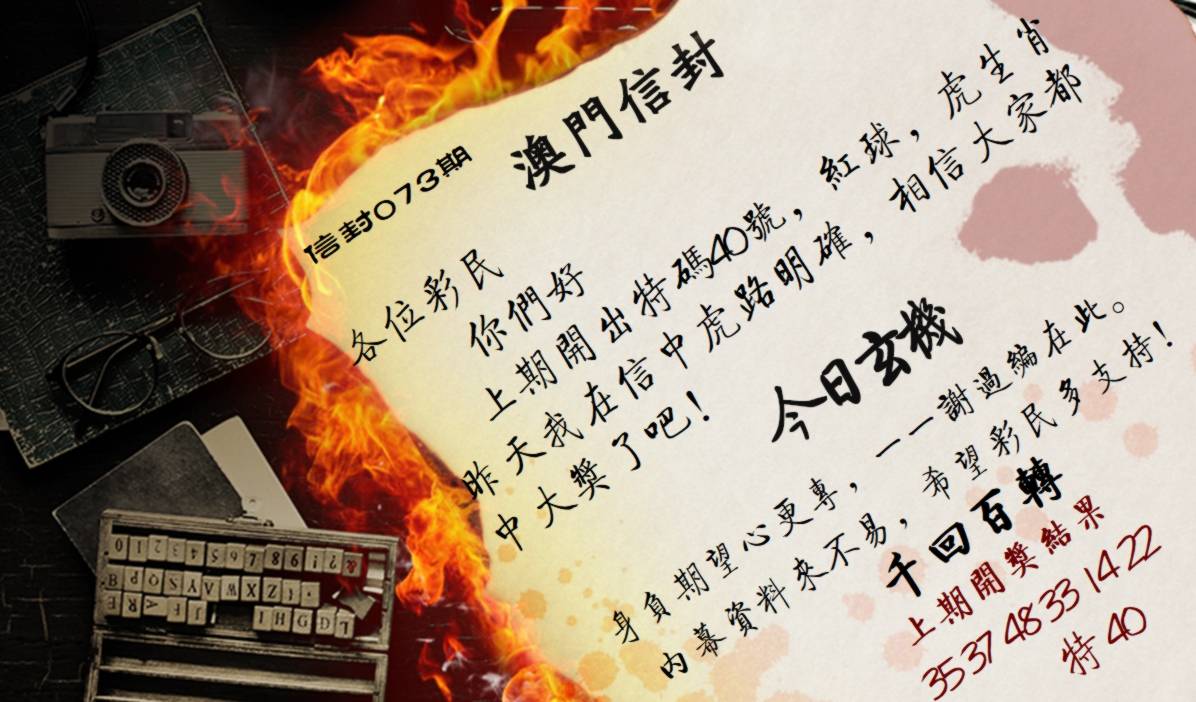 澳門信封
信封073期
各位彩民
你們好
上期開出特碼40號，紅球，虎生肖
昨天我在信中虎路明確，相信大家都
中大獎了吧！
今日玄機
身負期望心更專，一一謝過編在此。
内幕資料來不易，希望彩民多支持！
千回百轉
上期開獎結果
35 37 48 33 14 22
特 40